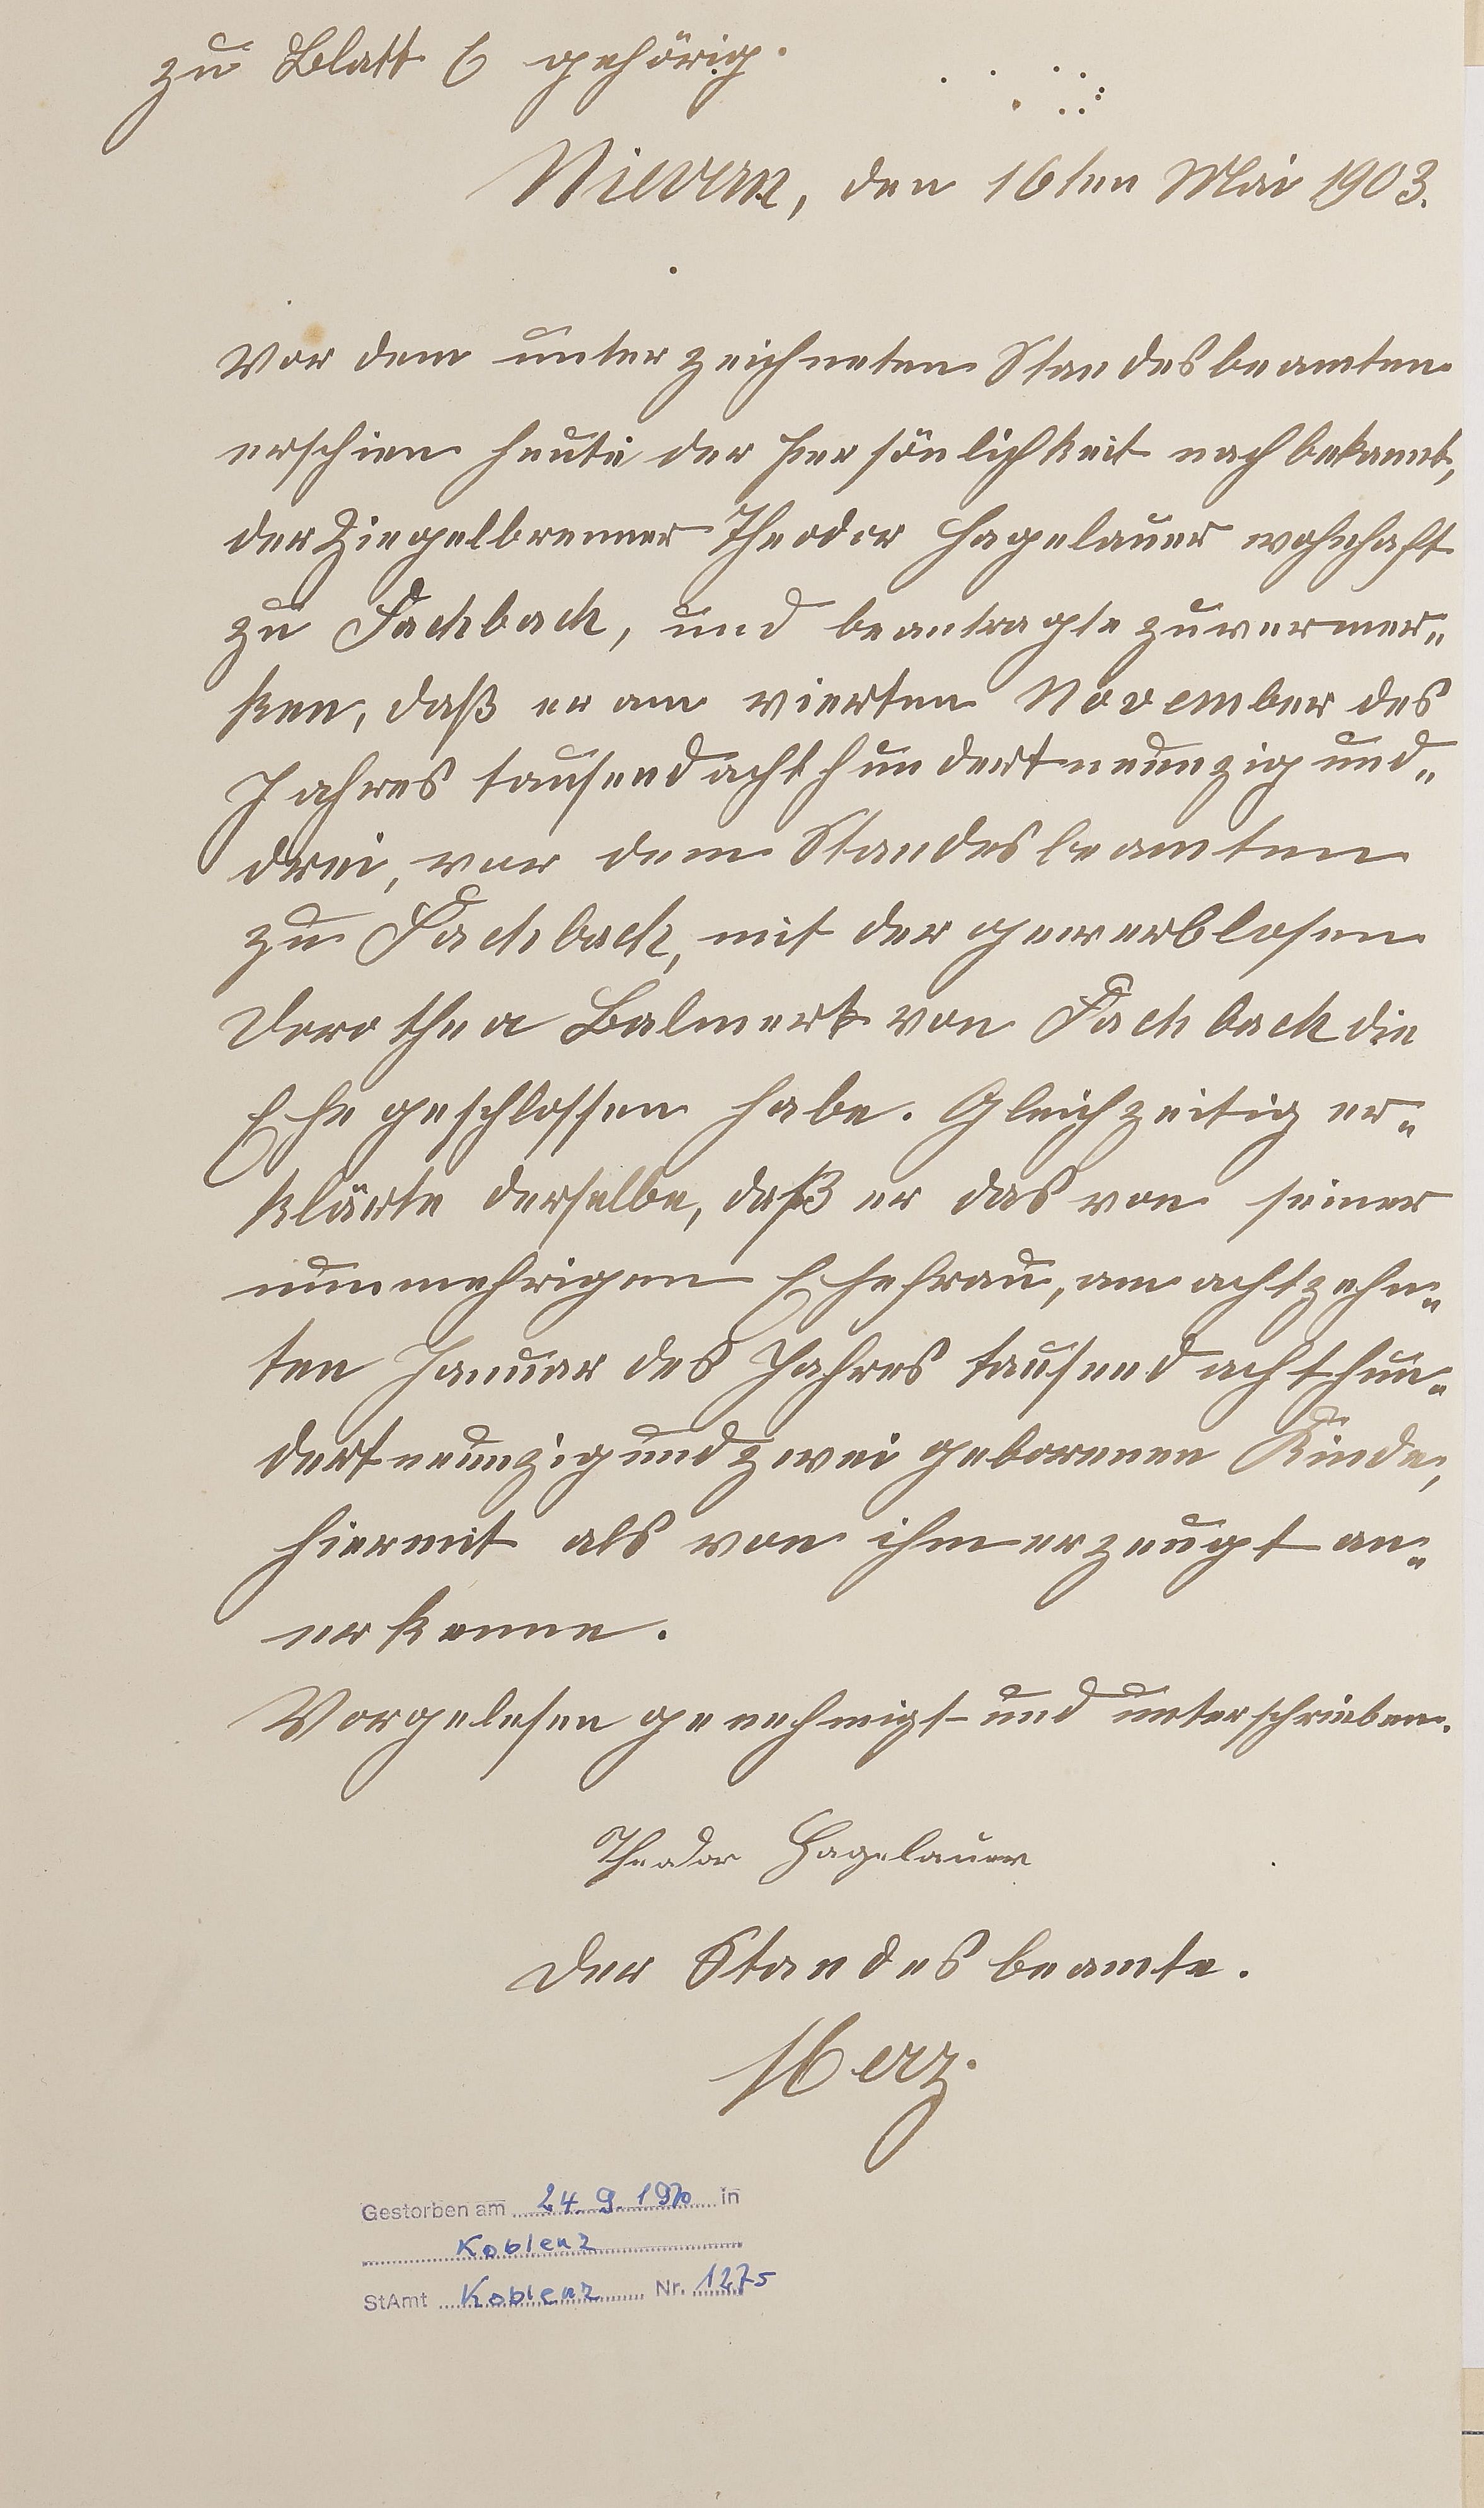 zu Blatt 6 gehörig.
Nievern, den 16ten Mai 1903.
Vor dem unterzeichneten Standesbeamten
erschien heute der Persönlichkeit nach bekannt,
der Ziegelbrenner Theodor Hagelauer wohnhaft
zu Fachbach, und beantragte zu vermer„
ken, daß er am vierten November des
Jahres tausendachthundertneunzigund„
drei, vor dem Standesbeamten
zu Fachbach, mit der gewerblosen
Dorothea Balmert von Fachbach die
Ehe geschlossen habe. Gleichzeitig er„
klärte derselbe, daß er das von seiner
nunmehrigen Ehefrau, am achtzehn„
ten Januar des Jahres tausendachthun„
dertneunzigundzwei geborenen Kinde,
hiermit als von ihm erzeugt an„
erkenne.
Vorgelesen genehmigt und unterschrieben.
Theodor Hagelauer
Der Standesbeamte.
Herz.
Gestorben am 24.9.1970 in
Koblenz
StAmt Koblenz Nr. 1275